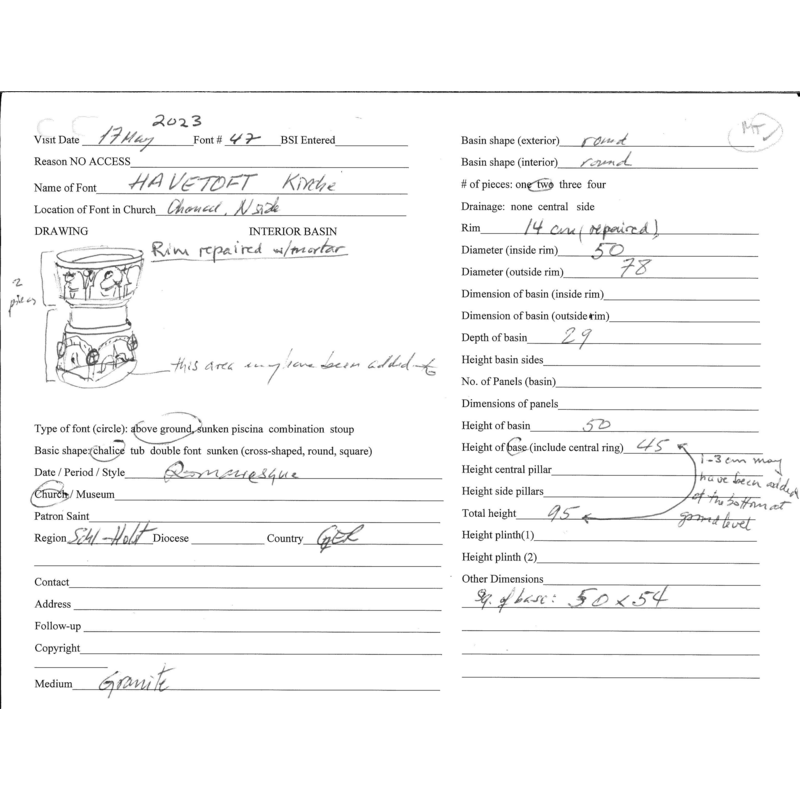 2023
Visit Date 17 May Font # 47 BSI Entered
Reason NO ACCESS
Name of Font HAVETOFT Kirche
Location of Font in Church Chancel, N side
DRAWING INTERIOR BASIN
Rim repaired w/mortar
2
pieces
this area may have been added to
Type of font (circle): above ground, sunken piscina combination stoup
Basic shape: chalice tub double font sunken (cross-shaped, round, square)
Date / Period / Style Romanesque
Church / Museum
Patron Saint
Region Schl-Holst Diocese Country GER
Contact
Address
Follow-up
Copyright
Medium Granite
MT
Basin shape (exterior) round
Basin shape (interior) round
# of pieces: one two three four
Drainage: none central side
Rim 14 cm (repaired)
Diameter (inside rim) 50
Diameter (outside rim) 78
Dimension of basin (inside rim)
Dimension of basin (outside rim)
Depth of basin 29
Height basin sides
No. of Panels (basin)
Dimensions of panels
Height of basin 50
Height of base (include central ring) 45
1-3 cm may
have been added
at the bottom at
ground level
Height central pillar
Height side pillars
Total height 95
Height plinth(1)
Height plinth (2)
Other Dimensions
Sq. of base: 50 x 54